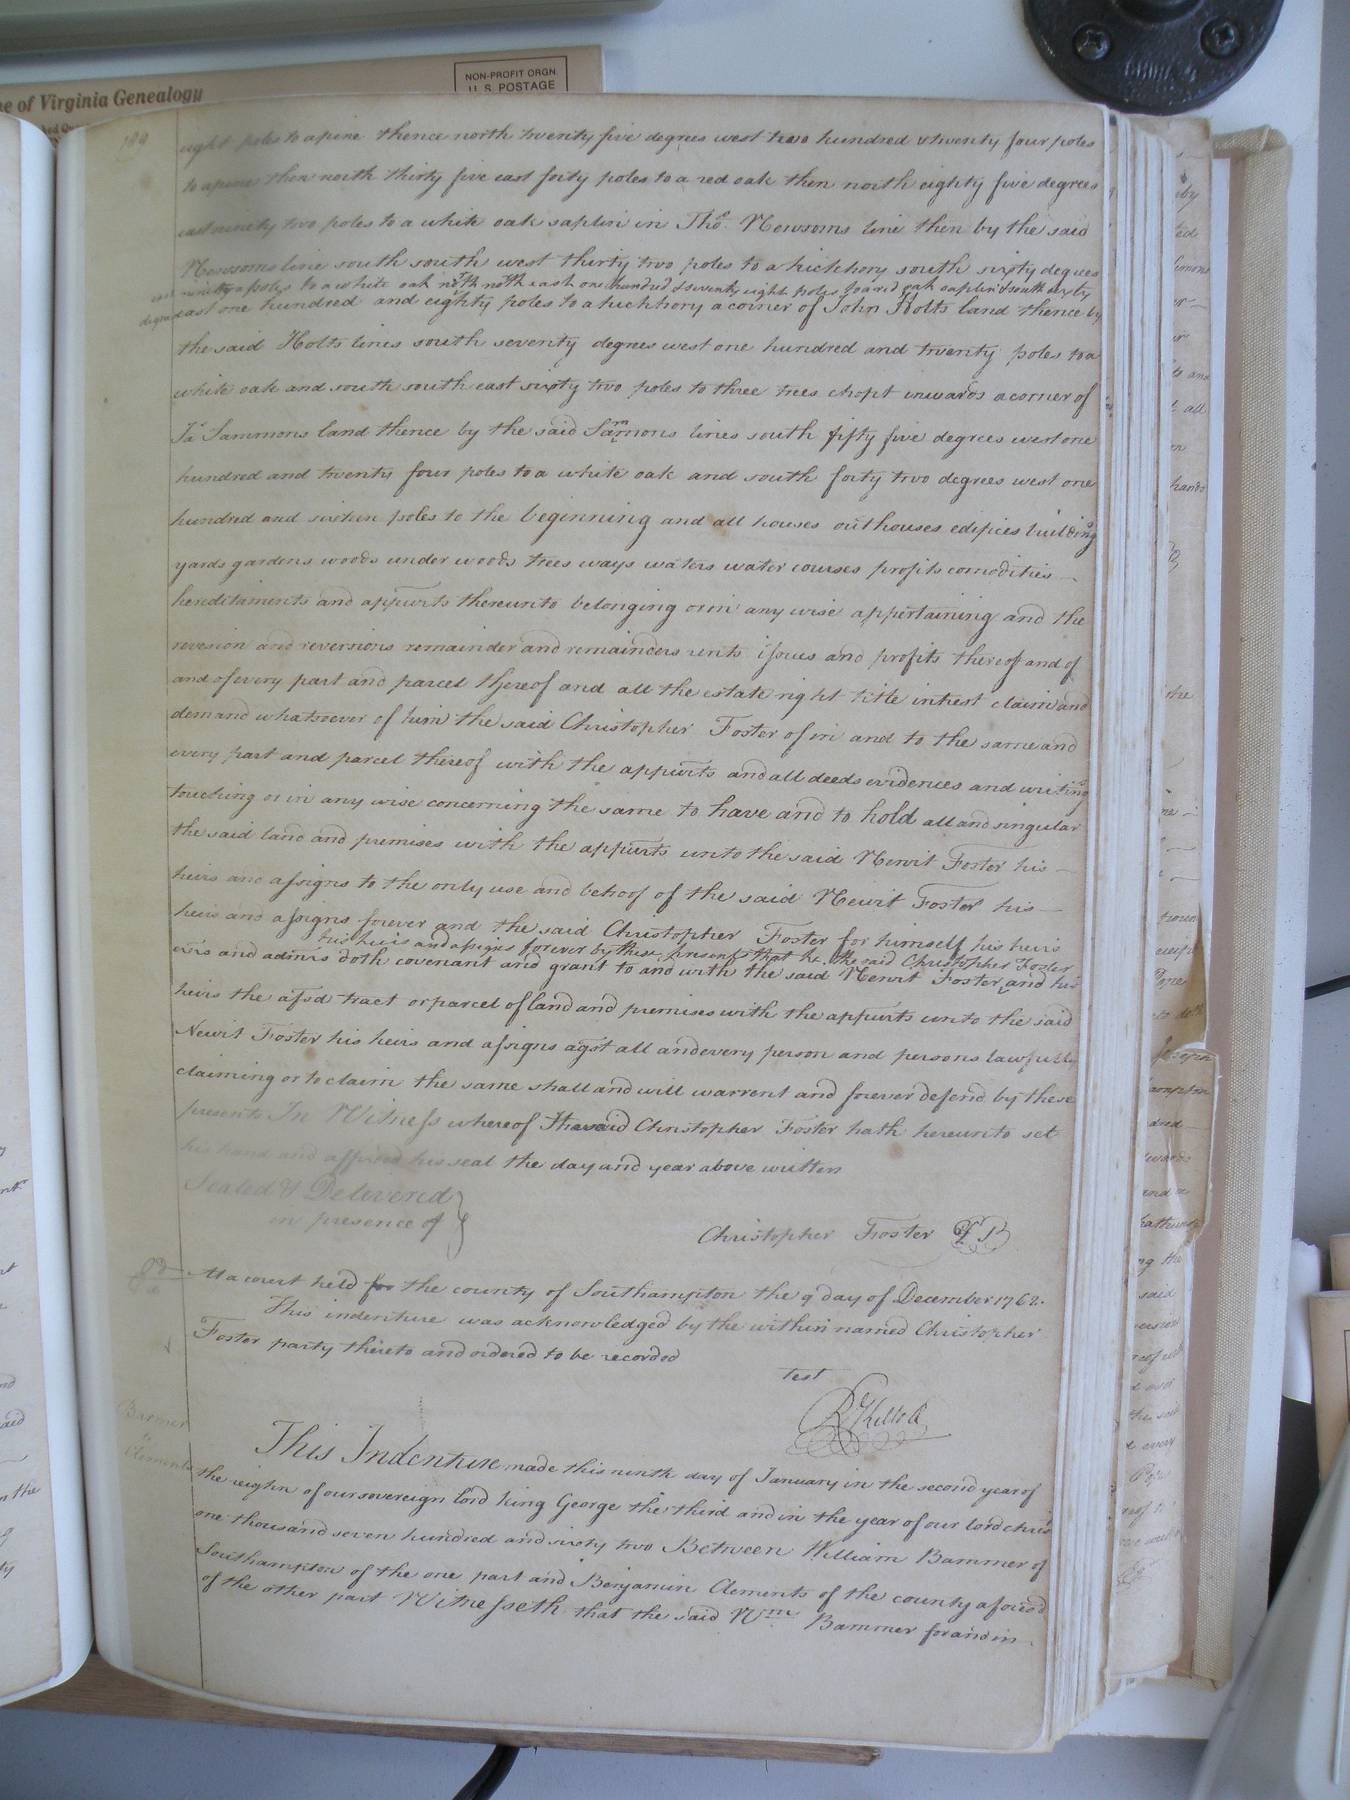 e of Virginia Genealogy
NON-PROFIT ORGN.
U. S. POSTAGE
189
eight poles to a pine thence north twenty five degrees west two hundred & twenty four poles
to a pine then north thirty five east forty poles to a red oak then north eighty five degrees
east ninety two poles to a white oak saplin in Tho.s Newsoms line then by the said
Newsoms line south south west thirty two poles to a hickhory south sixty degrees
east ninety poles to a white oak north north east one hundred & seventy eight poles to a red oak saplin & south sixty
degrees east one hundred and eighty poles to a hickhory a corner of John Holts land thence by
the said Holts lines south seventy degrees west one hundred and twenty poles to a
white oak and south south east sixty two poles to three trees chopt inwards a corner of
Ja.s Sammons land thence by the said Sammons lines south fifty five degrees west one
hundred and twenty four poles to a white oak and south forty two degrees west one
hundred and sixteen poles to the beginning and all houses outhouses edifices buildings
yards gardens woods under woods trees ways waters water courses profits comodities
hereditaments and appurts thereunto belonging or in any wise appertaining and the
revesion and reversions remainder and remainders rents issues and profits thereof and of
and of every part and parcel thereof and all the estate right title intrest claim and
demand whatsoever of him the said Christopher Foster of in and to the same and
every part and parcel thereof with the appurts and all deeds evidences and writings
touching or in any wise concerning the same to have and to hold all and singular
the said land and premises with the appurts unto the said Newit Foster his
heirs and assigns to the only use and behoof of the said Newit Foster his
heirs and assigns forever and the said Christopher Foster for himself his heirs
his heirs and assigns forever by these presents that he the said Christopher Foster
exrs and admrs doth covenant and grant to and with the said Newit Foster and his
heirs the afsd tract or parcel of land and premises with the appurts unto the said
Newit Foster his heirs and assigns agst all and every person and persons lawfully
claiming or to claim the same shall and will warrent and forever defend by these
presents In Witness whereof the said Christopher Foster hath hereunto set
his hand and affixed his seal the day and year above written
Sealed & Delivered
in presence of
Christopher Foster
At a court held for the county of Southampton the 9 day of December 1762.
This indenture was acknowledged by the within named Christopher
Foster party thereto and ordered to be recorded
Test
R Kello
Bammer
to
Clements
This Indenture made this ninth day of January in the second year of
the reighn of our sovereign lord King George the third and in the year of our lord christ
one thousand seven hundred and sixty two Between William Bammer of
Southampton of the one part and Benjamin Clements of the county aforesd
of the other part Witnesseth that the said Wm Bammer for and in